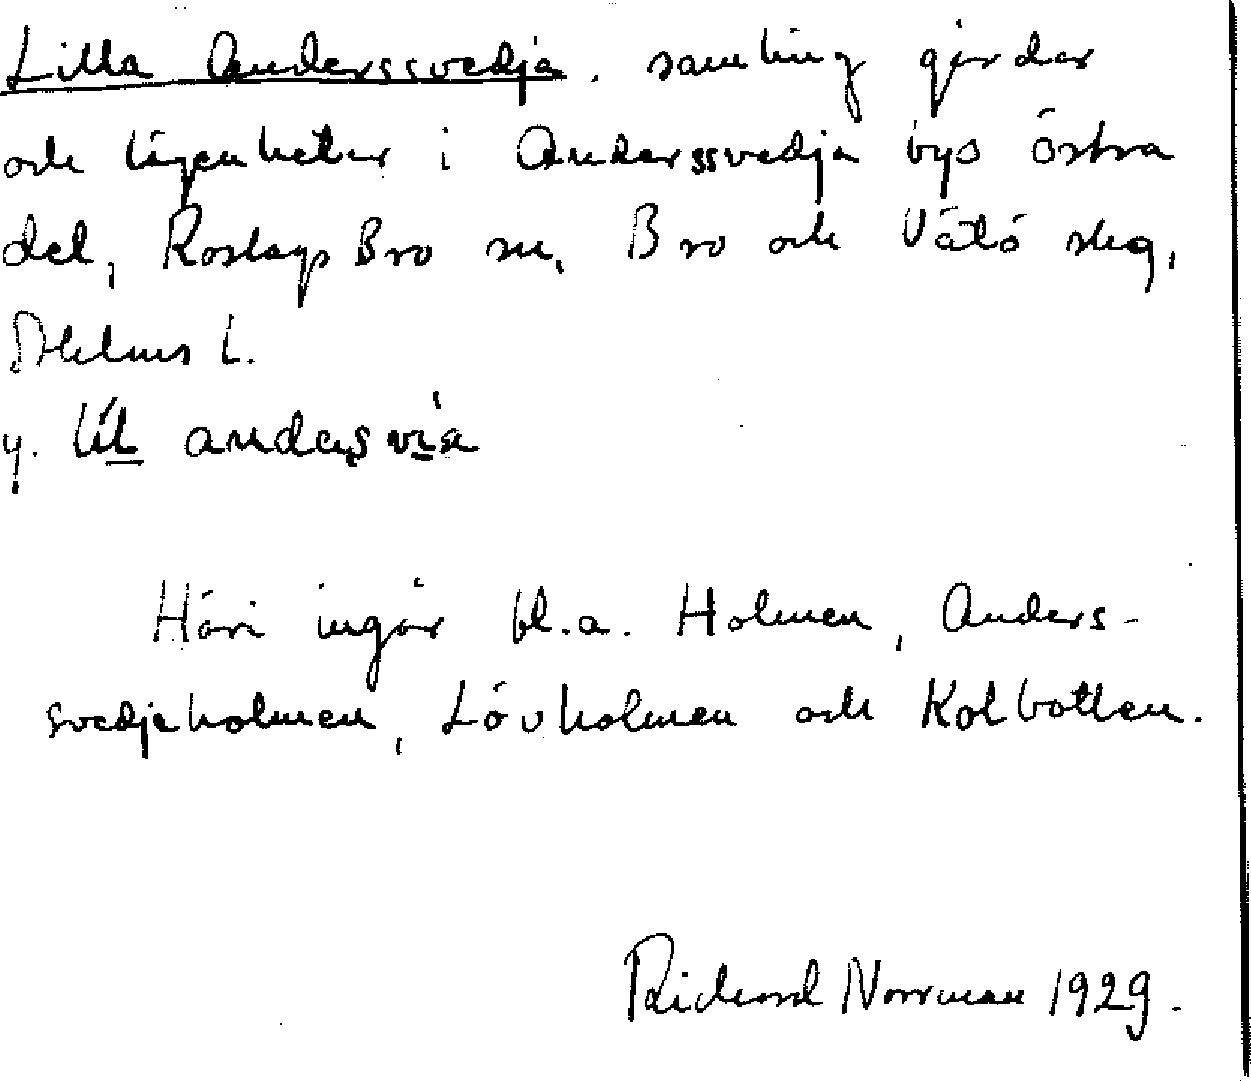 Lilla Anderssvedja, samling gårdar
och lägenheter i Anderssvedja bys östra
del, Roslags Bro sn, Bro och Vätö skg,
Sthlms l.
y. lìl andaṣvìa
Häri ingår bl.a. Holmen, Anders-
svedjeholmen, Lövholmen och Kolbotten.
Rickard Norrman 1929.